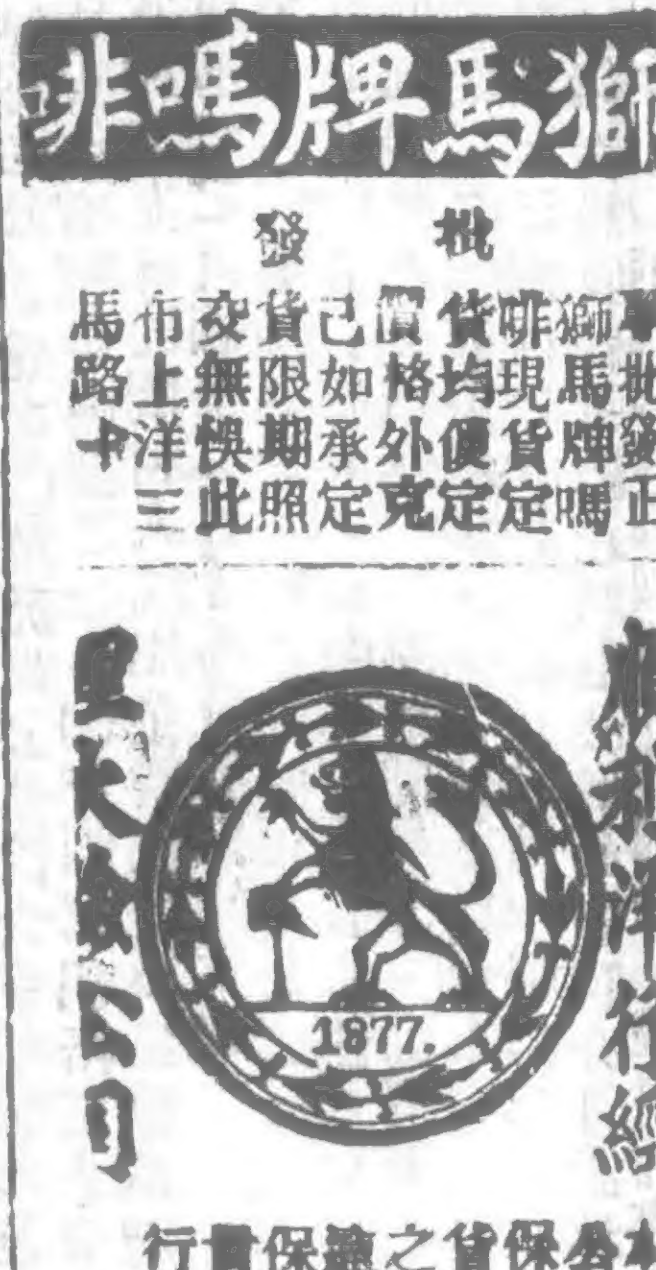 獅馬牌嗎啡
批發
批發正
獅馬牌嗎
啡現貨定
貨均便定
價格外克
己如承定
貨限期照
交無悞此
布上洋三
馬路十
順利洋行經
1877.
里火險公司
保貨之
保
行